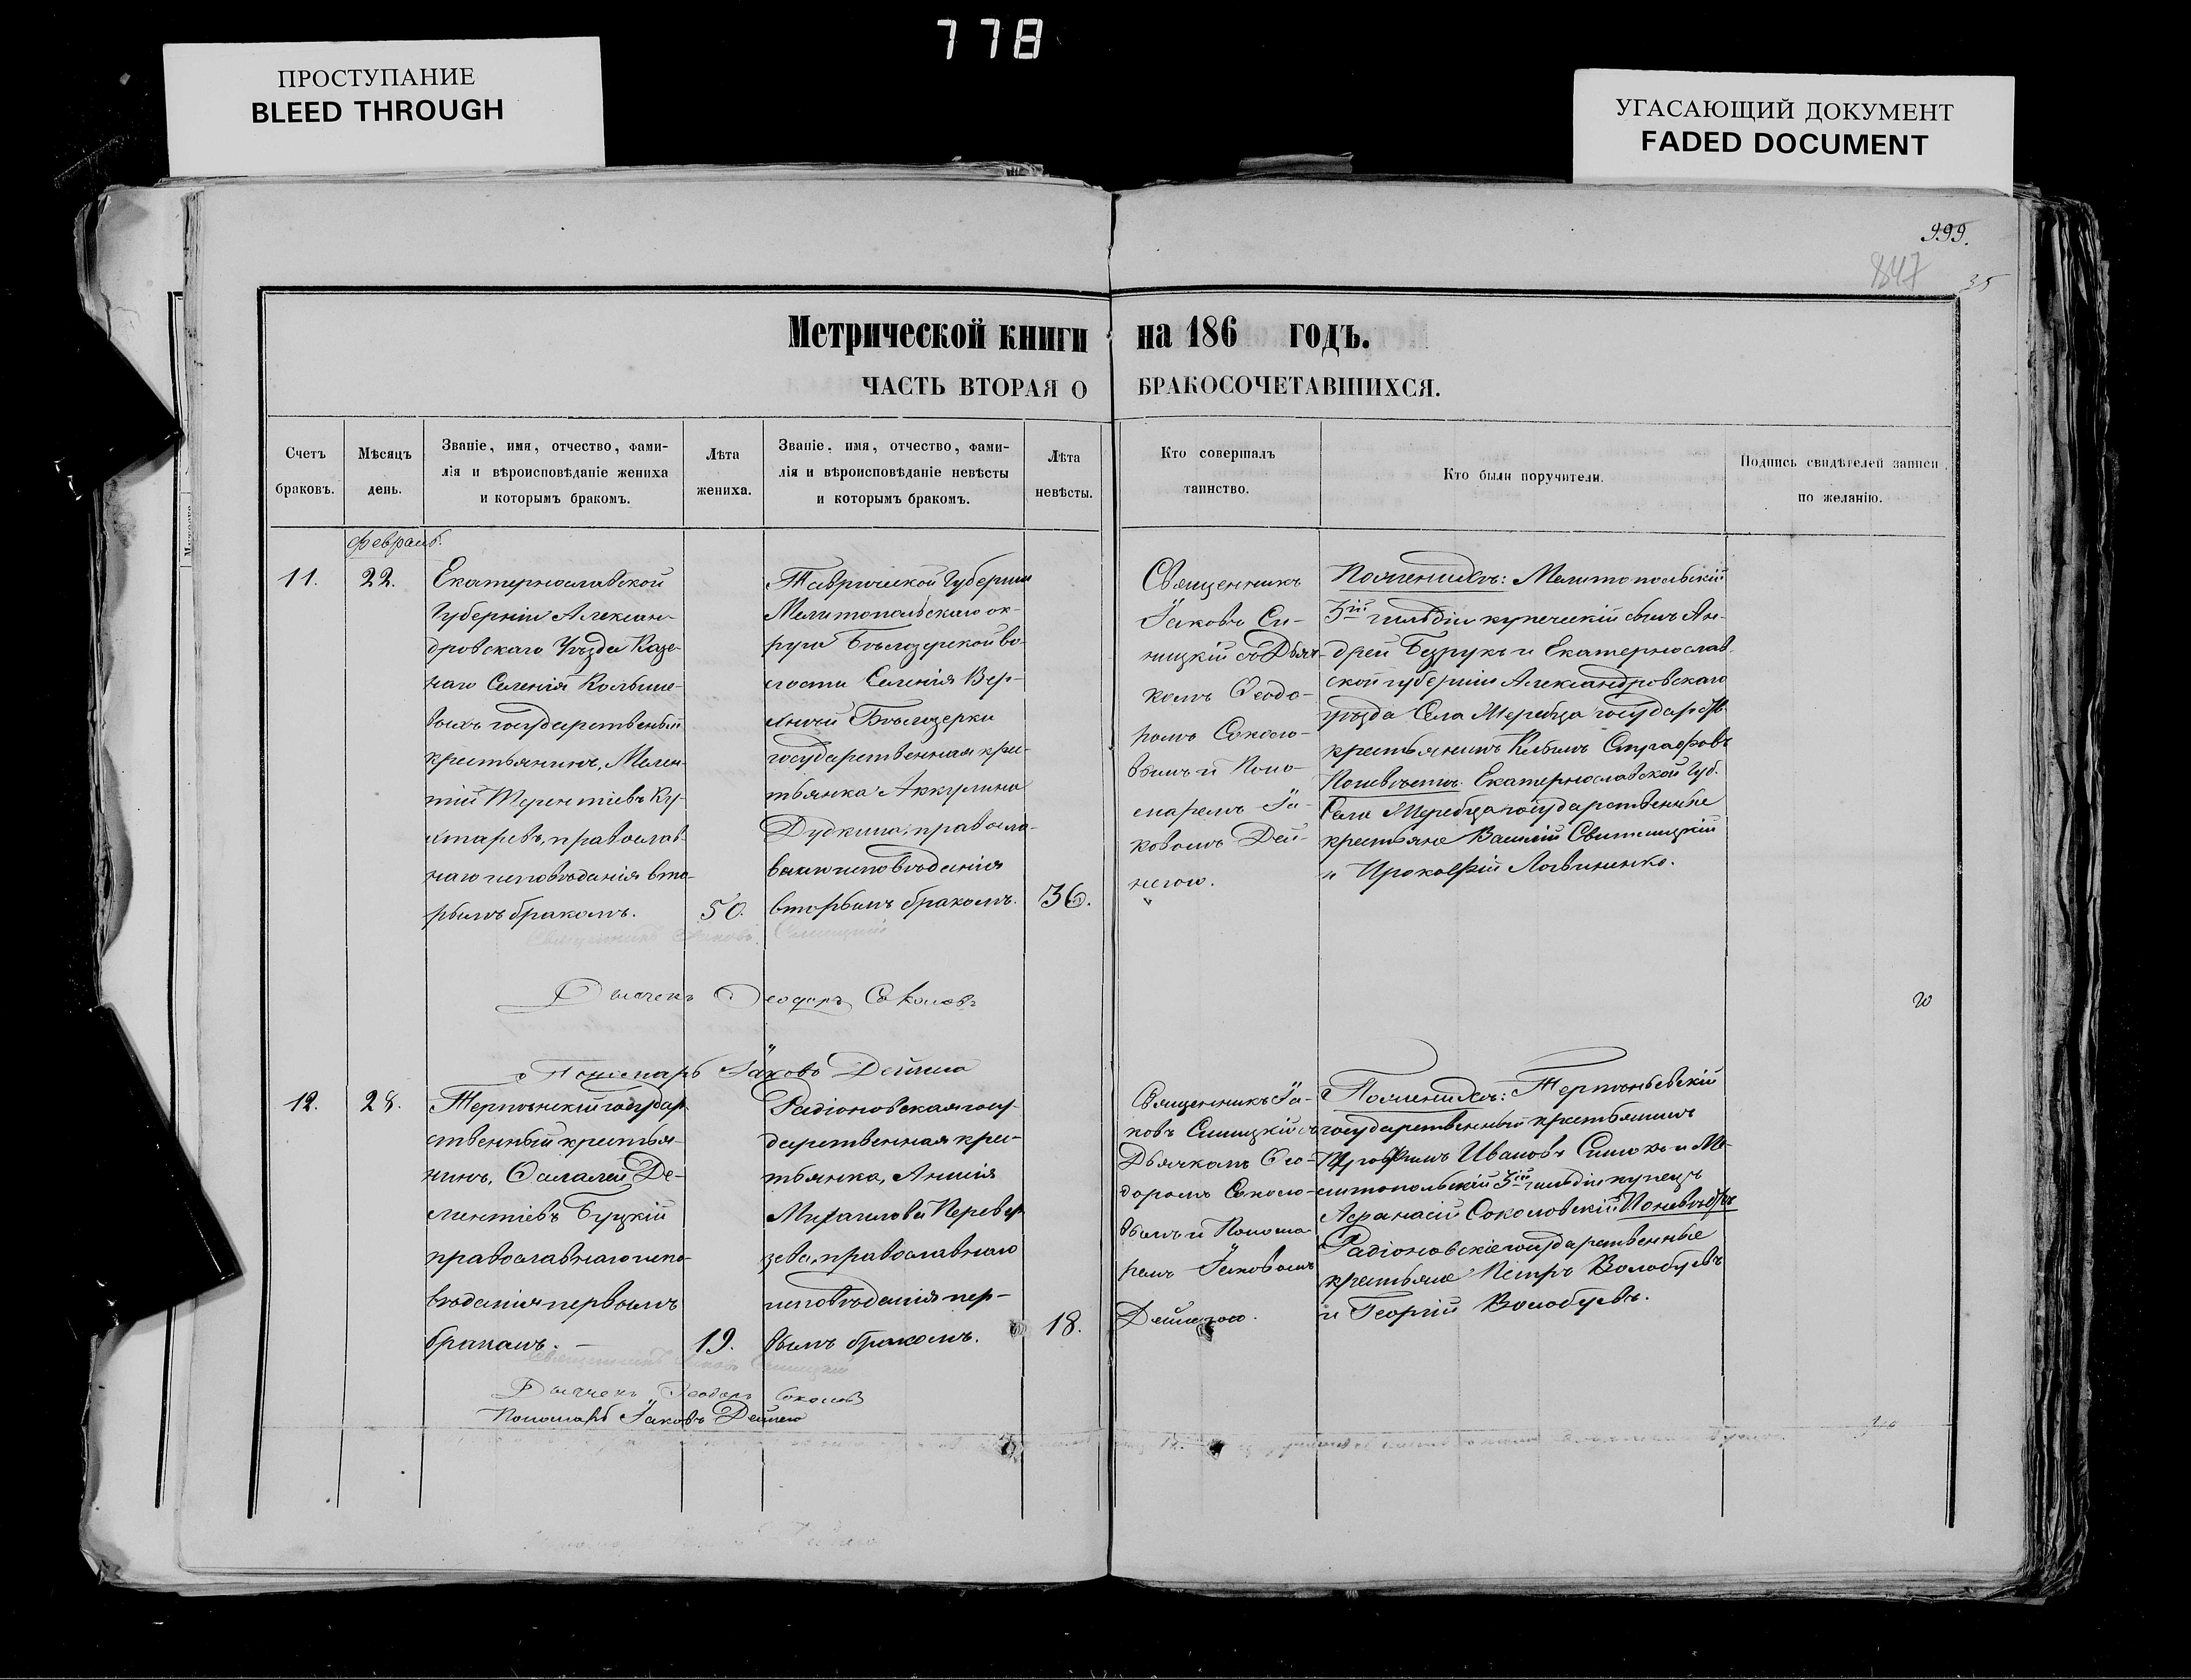 778
ПРОСТУПАНИЕ
BLEED THROUGH
УГАСАЮЩИЙ ДОКУМЕНТ
FADED DOCUMENT
999.
847
35
Метрической книги на 186 годъ.
ЧАСТЬ ВТОРАЯ О БРАКОСОЧЕТАВШИХСЯ.
Счетъ
браковъ.
Мѣсяцъ
день.
Званіе, имя, отчество, фами-
лія и вѣроисповѣданіе жениха
и которымъ бракомъ.
Лѣта
жениха.
Званіе, имя, отчество, фами-
лія и вѣроисповѣданіе невѣсты
и которымъ бракомъ.
Лѣта
невѣсты.
Кто совершалъ
таинство.
Кто были поручители.
Подпись свидѣтелей записи
по желанію.
Февраль.
11.
22.
Екатеринославской
Губерніи Алексан-
дровскаго Уѣзда Казе-
наго Селенія
государственный
крестьянинъ, Мелен-
тій Терентіевъ Ку-
хтаревъ, православ-
наго исповѣданія вто-
рымъ бракомъ.
50.
Таврической Губерніи
Мелитопольскаго ок-
руга Бѣлозерской во-
лости Селенія Вер-
хней Бѣлозерки
государственная крес-
тьянка Аккулина
Дудкина, правосла-
внаго исповѣданія
вторымъ бракомъ.
36.
Священникъ
Іаковъ Си-
ницкій съ Дьяч-
комъ Ѳеодо-
ромъ Соколо-
вымъ и Поно-
маремъ Іа-
ковомъ Дей-
негою.
По женихѣ: Мелитопольскій
3й гильдіи купеческій сынъ Ан-
дрей Безрукъ и Екатеринослав-
ской губерніи Александровскаго
уѣзда Села Жеребца государств.
крестьянинъ
По невѣстѣ: Екатеринославской Губ.
Села Жеребца государственные
крестьяне Василій
и Прокофій Логвиненко.
Священникъ Іаковъ Синицкій
Дьячекъ Ѳеодоръ Соколовъ
Пономарь Іаковъ Дейнега
12.
28.
Терпѣнскій государ-
ственный крестья-
нинъ, Ѳалалей Де-
ментіевъ Буцкій
православнаго испо-
вѣданія первымъ
бракомъ.
19.
Радіоновская госу-
дарственная крес-
тьянка, Аннія
Михаилова Перевер-
зева, православнаго
исповѣданія пер-
вымъ бракомъ.
18.
Священникъ Іа-
ковъ Синицкій съ
Дьячкомъ Ѳео-
доромъ Соколо-
вымъ и Понома-
ремъ Іаковомъ
Дейнегою.
По женихѣ: Терпѣньевскій
государственный крестьянинъ
Трофимъ Ивановъ и Ме-
литопольскій 3й гильдіи купецъ
Аѳанасій Соколовскій По невѣстѣ
Радіоновскіе государственные
крестьяне Петръ Волобуевъ
и Георгій Волобуевъ.
Священникъ Іаковъ Синицкій
Дьячекъ Ѳеодоръ Соколовъ
Пономарь Іаковъ Дейнега